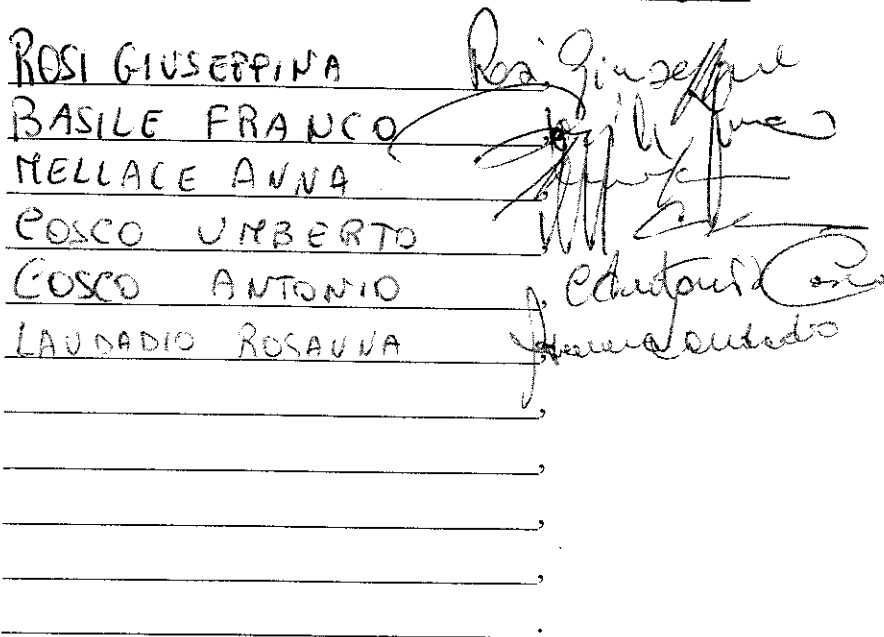 ROSI GIUSEPPINA, Rosi Giuseppina
BASILE FRANCO,
MELLACE ANNA
COSCO UMBERTO,
COSCO ANTONIO, Antonio Cosco
LAUDADIO ROSANNA, Laudadio
,
,
,
,
.